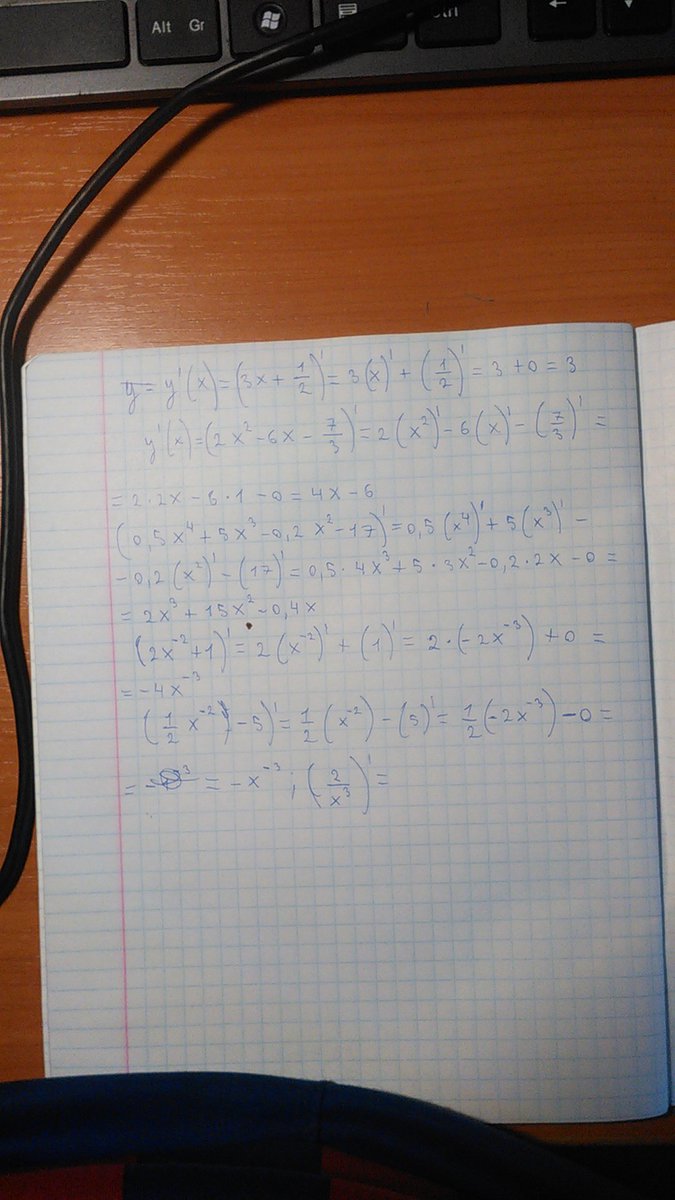 Alt Gr
Ctrl
y = y'(x) = (3x + 1/2)' = 3(x)' + (1/2)' = 3 + 0 = 3
y'(x) = (2x² - 6x - 7/3)' = 2(x²)' - 6(x)' - (7/3)' =
= 2·2x - 6·1 - 0 = 4x - 6
(0,5x⁴ + 5x³ - 0,2x² - 17)' = 0,5(x⁴)' + 5(x³)' -
- 0,2(x²)' - (17)' = 0,5·4x³ + 5·3x² - 0,2·2x - 0 =
= 2x³ + 15x² - 0,4x
(2x⁻² + 1)' = 2(x⁻²)' + (1)' = 2·(-2x⁻³) + 0 =
= -4x⁻³
(1/2 x⁻² - 5)' = 1/2 (x⁻²) - (5)' = 1/2 (-2x⁻³) - 0 =
= = -x⁻³ ; (2/x³)' =